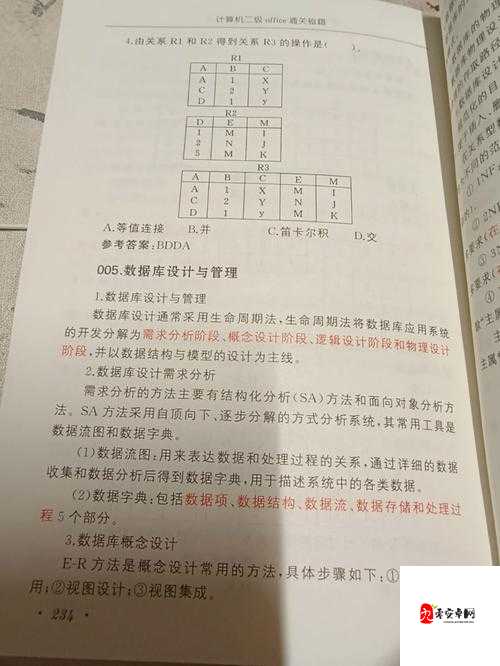 计算机二级office通关秘籍
4.由关系R1和R2得到关系R3的操作是( )。
R1
A B C
A 1 X
C 2 Y
D 1 y
R2
D E M
1 M I
2 N J
5 M K
R3
A B C E M
A 1 X M I
C 2 Y N J
D 1 y M K
A.等值连接 B.并 C.笛卡尔积 D.交
参考答案:BDDA
005.数据库设计与管理
1.数据库设计与管理
数据库设计通常采用生命周期法,生命周期法将数据库应用系统
的开发分解为需求分析阶段、概念设计阶段、逻辑设计阶段和物理设计
阶段,并以数据结构与模型的设计为主线。
2.数据库设计需求分析
需求分析的方法主要有结构化分析(SA)方法和面向对象分析方
法。SA方法采用自顶向下、逐步分解的方式分析系统,其常用工具是
数据流图和数据字典。
(1)数据流图:用来表达数据和处理过程的关系,通过详细的数据
收集和数据分析后得到数据字典,用于描述系统中的各类数据。
(2)数据字典:包括数据项、数据结构、数据流、数据存储和处理过
程5个部分。
3.数据库概念设计
E-R方法是概念设计常用的方法,具体步骤如下:①
用;②视图设计;③视图集成。
· 234 ·